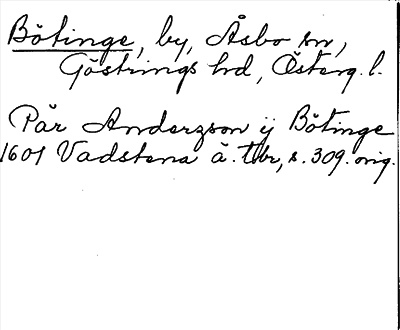 Bötinge, by, Åsbo sn,
Göstrings hd, Österg. l.
Pär Anderzson ij Bötinge
1601 Vadstena ä. tbr, s. 309. orig.